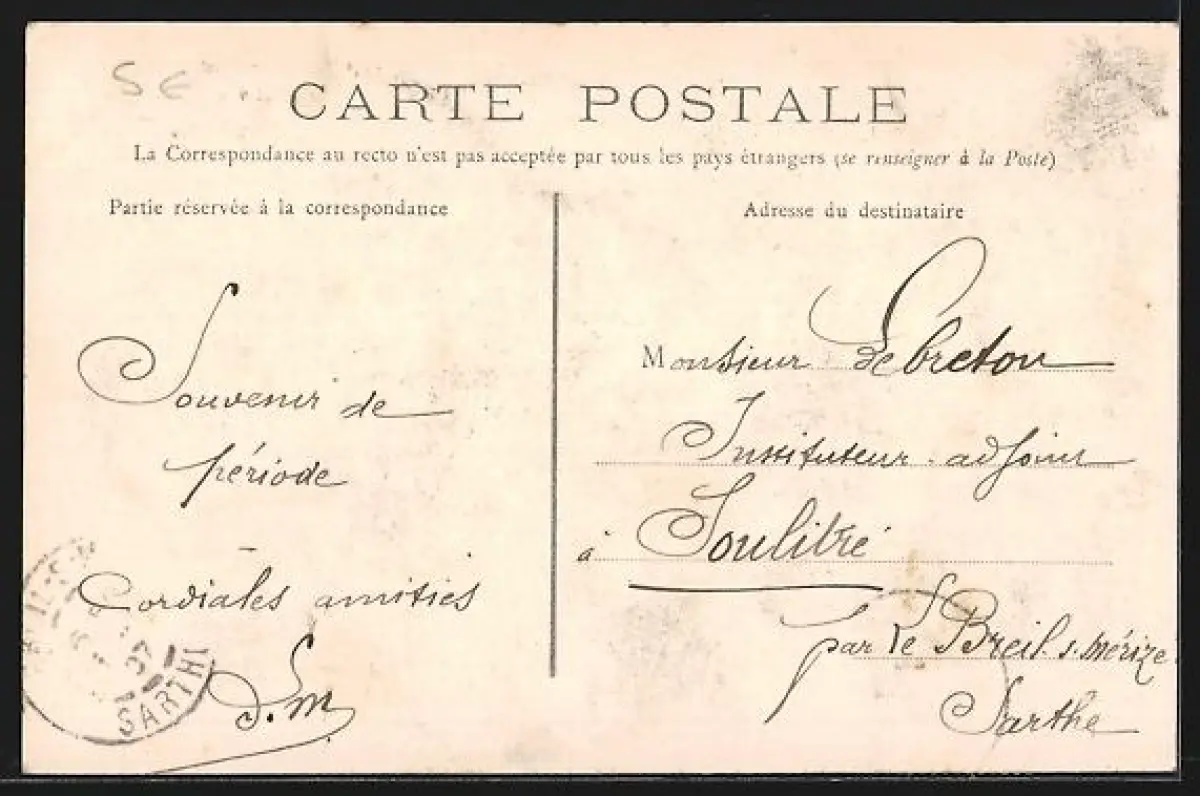 5 €
CARTE POSTALE
La Correspondance au recto n'est pas acceptée par tous les pays étrangers (se renseigner à la Poste)
Partie réservée à la correspondance
Souvenir de
période
Cordiales amitiés
S.m
SARTHE
07
Adresse du destinataire
Monsieur Lebreton
Instituteur-adjoint
à Soulitré
par le Breil. s. Mérize
Sarthe